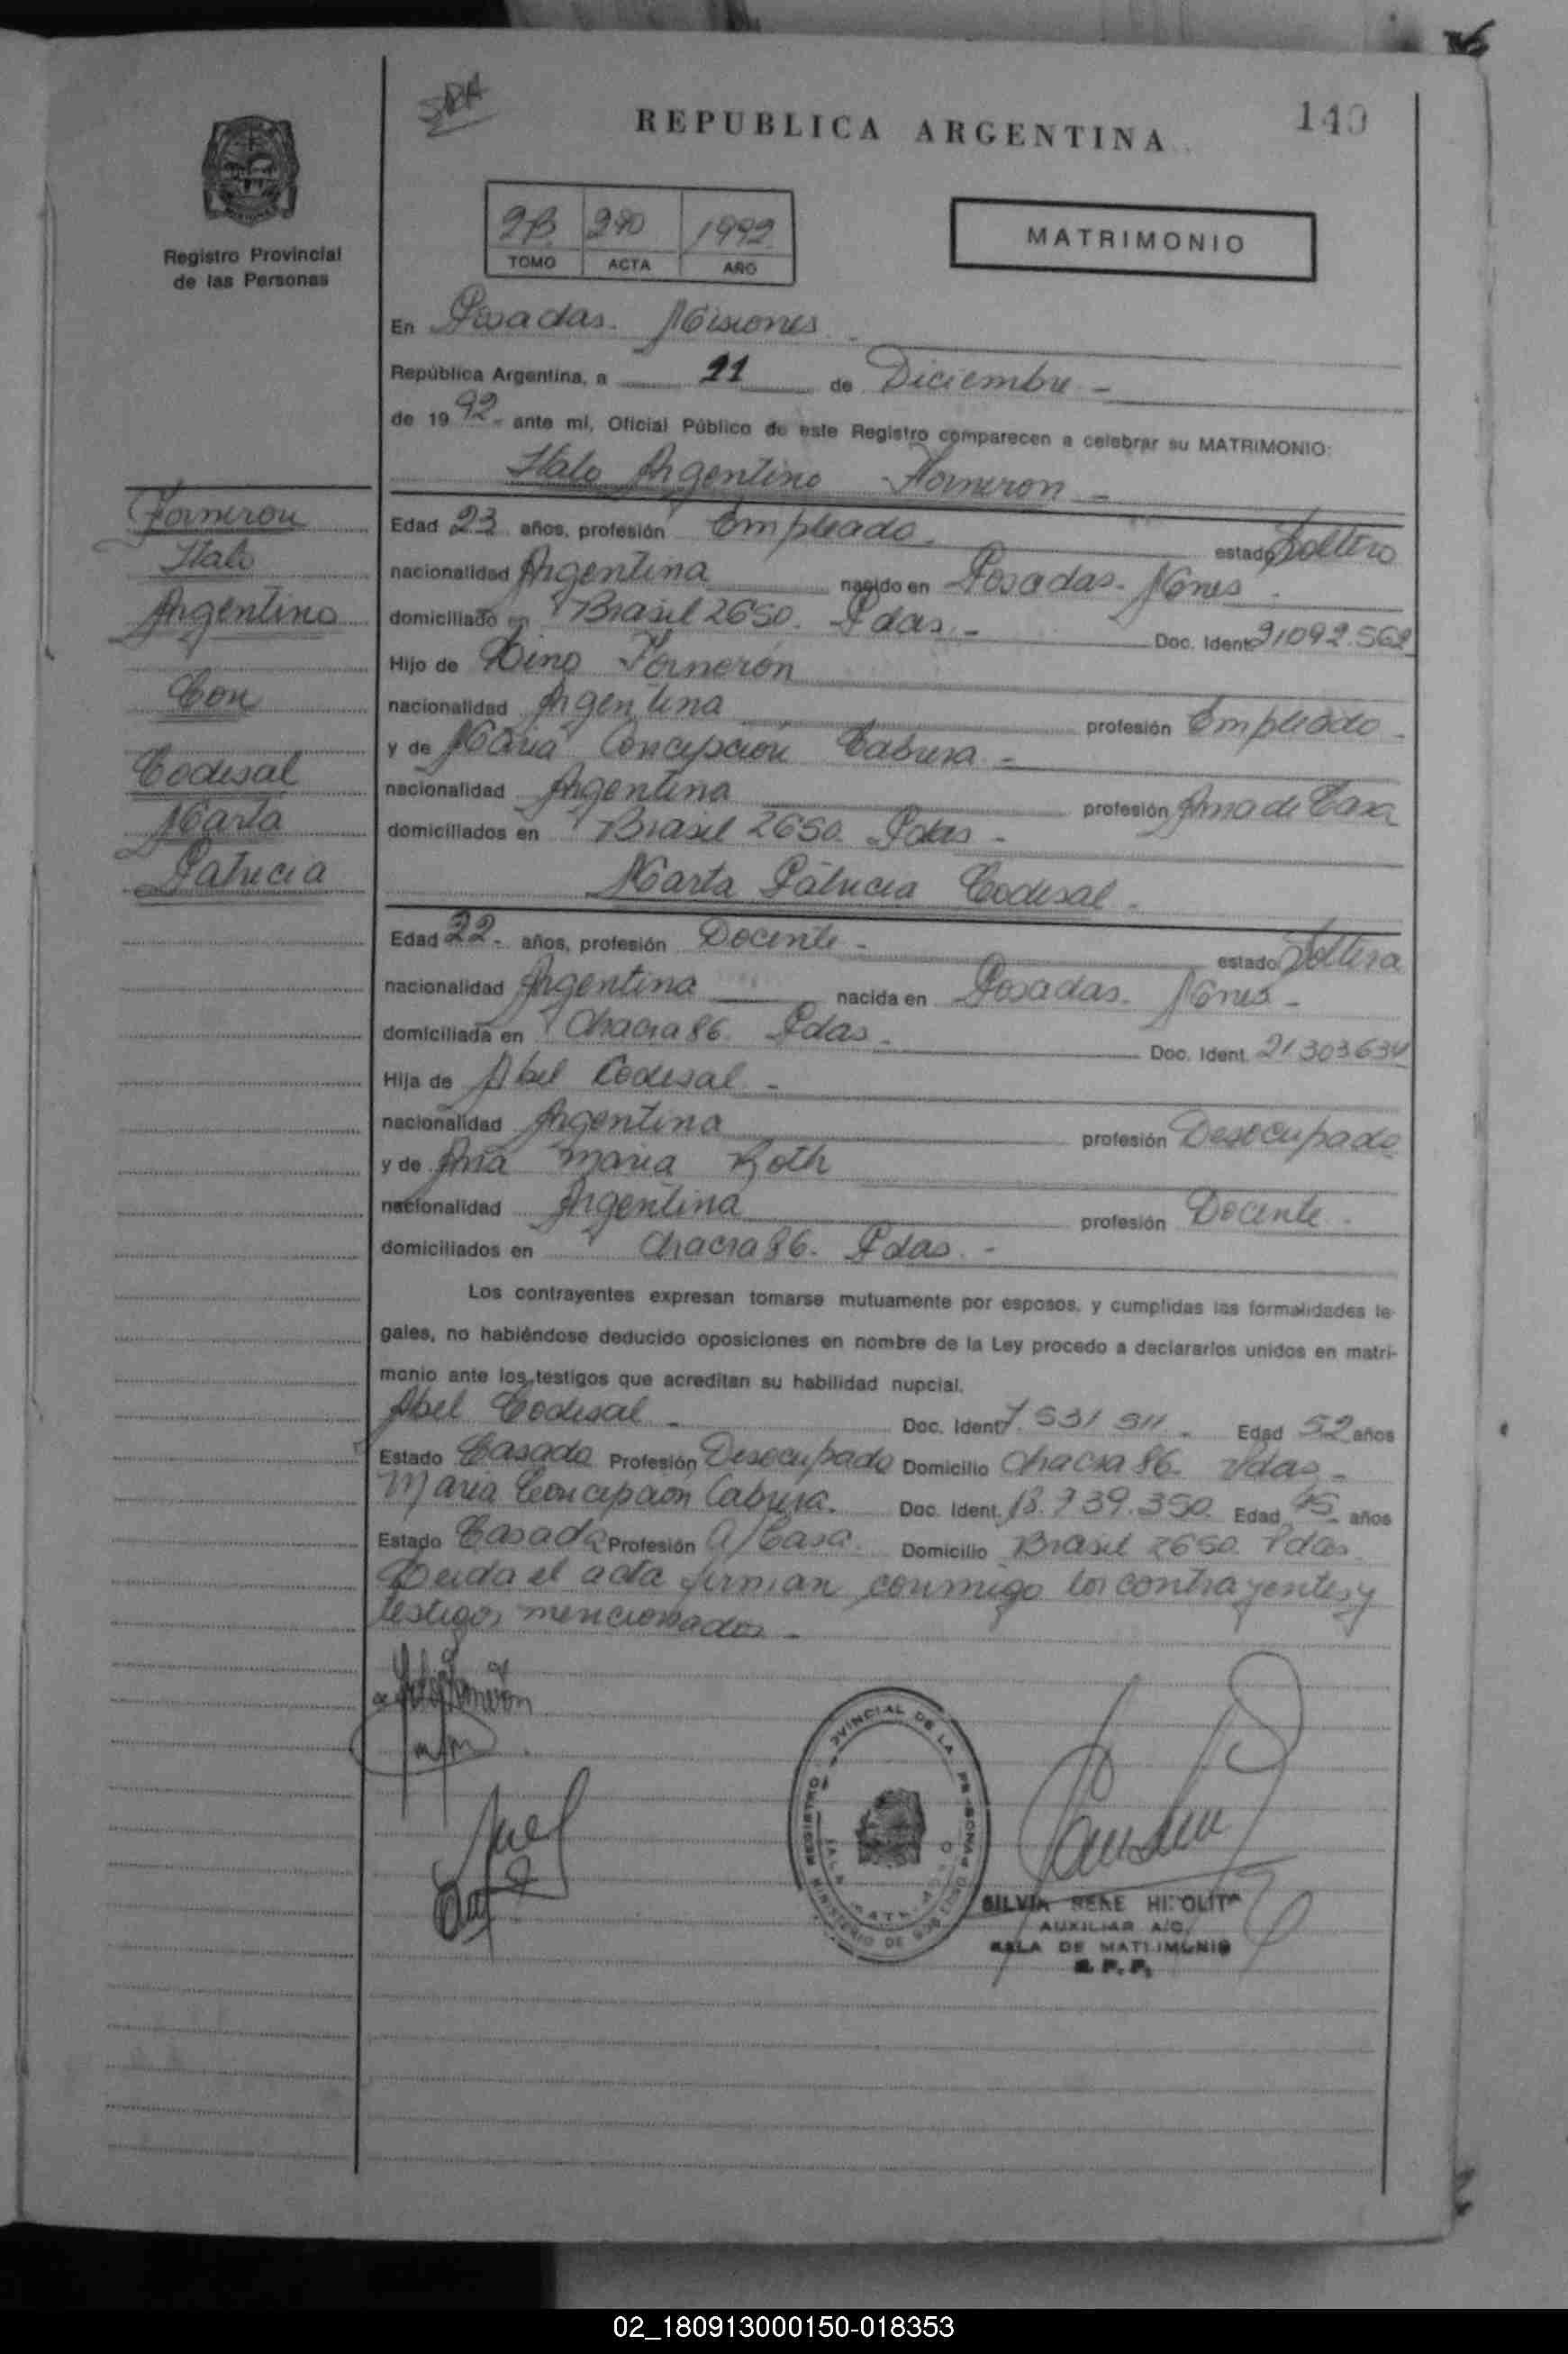 REPUBLICA ARGENTINA
Registro Provincial
de las Personas
2B 290 1992
TOMO ACTA AÑO
MATRIMONIO
En Posadas. Misiones
República Argentina, a de Diciembre -
de 1992- ante mi, Oficial Público de este Registro comparecen a celebrar su MATRIMONIO:
Italo Argentino Forneron -
Forneron
Italo
Argentino
Con
Codesal
Marta
Patricia
Edad 23 años, profesión Empleado. estado Soltero
nacionalidad Argentina nacido en Posadas. Mnes.
domiciliado en Brasil 2650. Pdas. - Doc. Ident. 21092.562
Hijo de Dino Fornerón
nacionalidad Argentina profesión Empleado -
y de Maria Concepcion Cabrera -
nacionalidad Argentina profesión Ama de Casa
domiciliados en Brasil 2650. Pdas -
Marta Patricia Codesal -
Edad 22- años, profesión Docente - estado Soltera
nacionalidad Argentina nacida en Posadas. Mnes -
domiciliada en Chacra 86. Pdas - Doc. Ident. 21303634
Hija de Abel Codesal -
nacionalidad Argentina profesión Desocupado
y de Ana Maria Roth
nacionalidad Argentina profesión Docente -
domiciliados en Chacra 86. Pdas. -
Los contrayentes expresan tomarse mutuamente por esposos, y cumplidas las formalidades le-
gales, no habiéndose deducido oposiciones en nombre de la Ley procedo a declararlos unidos en matri-
monio ante los testigos que acreditan su habilidad nupcial.
Abel Codesal - Doc. Ident. 7.531 911 - Edad 52 años
Estado Casado Profesión Desocupado Domicilio Chacra 86. Pdas -
Maria Concepcion Cabrera. Doc. Ident. Edad 45 años
Estado Casada Profesión A/Casa. Domicilio Brasil 2650. Pdas.
Leida el acta firman conmigo los contrayentes y
testigos mencionados -
SILVIA RENE HIPOLITA
AUXILIAR A/C.
SALA DE MATRIMONIO
02_180913000150-018353